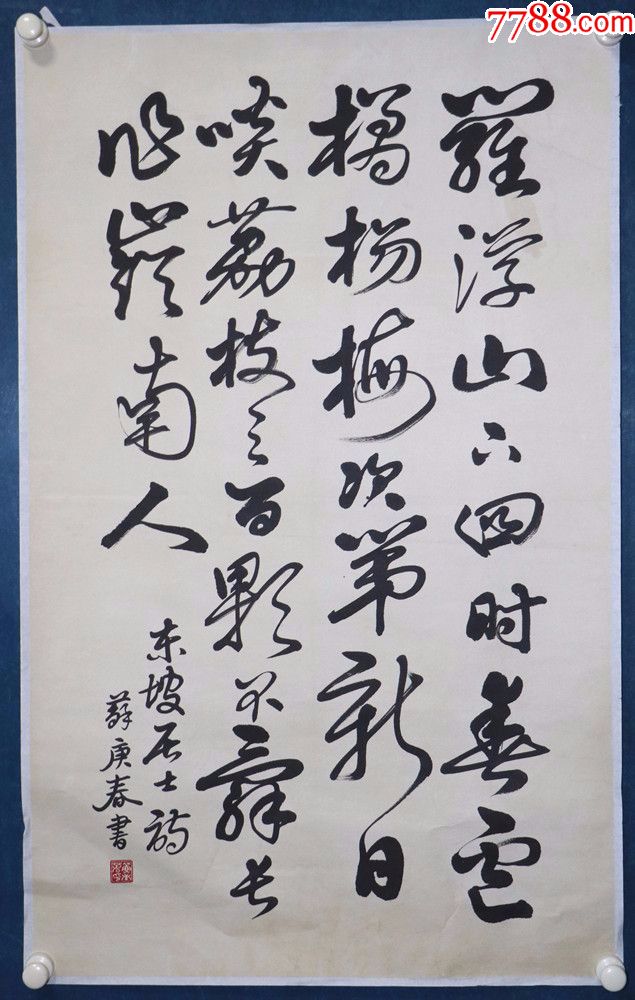 7788.com
羅浮山下四时春盧
橘杨梅次第新日
啖荔枝三百颗不辭长
作嶺南人
东坡居士诗
蘇庚春書